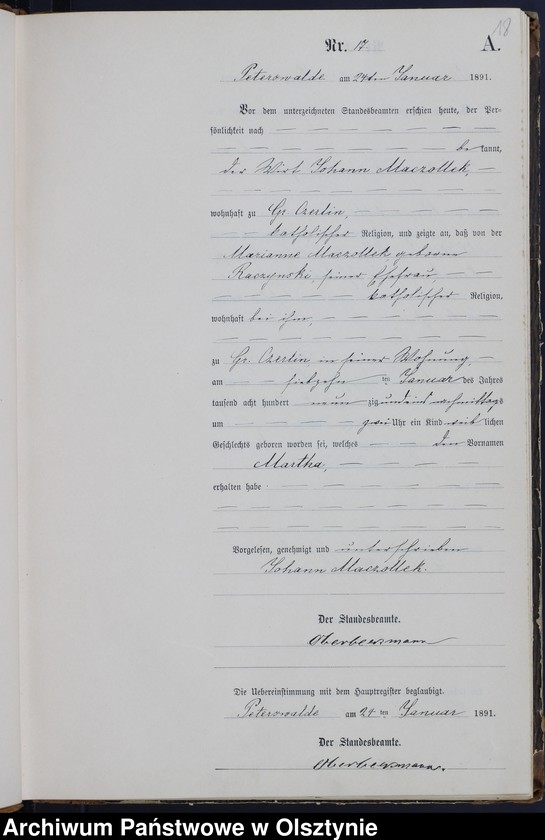 18
Nr. 17 A.
Peterswalde am 24ten Januar 1891.
Vor dem unterzeichneten Standesbeamten erschien heute, der Per-
sönlichkeit nach
be kannt,
der Wirt Johann Maczollek,
wohnhaft zu Gr. Ozertin,
katholischer Religion, und zeigte an, daß von der
Marianne Maczollek, geborne
Raczynski, seiner Ehefrau
katholischer Religion,
wohnhaft bei ihm,
zu Gr. Ozertin in seiner Wohnung,
am siebzehn ten Januar des Jahres
tausend acht hundert neun zig und eins nachmittags
um zwei Uhr ein Kind weib lichen
Geschlechts geboren worden sei, welches den Vornamen
Martha,
erhalten habe
Vorgelesen, genehmigt und unterschrieben
Johann Maczollek.
Der Standesbeamte.
Die Uebereinstimmung mit dem Hauptregister beglaubigt.
Peterswalde am 24 ten Januar 1891.
Der Standesbeamte.
Archiwum Państwowe w Olsztynie